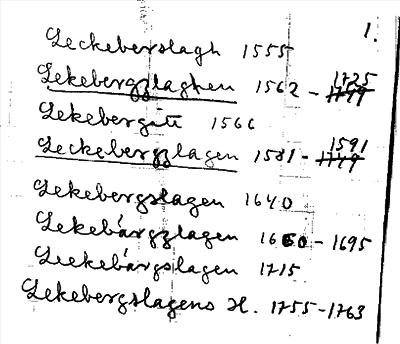 1.
Leckeberslagh 1555
Lekebergzlaghen 1562 - 1725
Lekebergitt 1566
Leckebergzlagen 1581 - 1591
Lekebergslagen 1640
Lekebärgzlagen 1660 - 1695
Leekebärgslagen 1715
Lekebergslagens H. 1755-1763